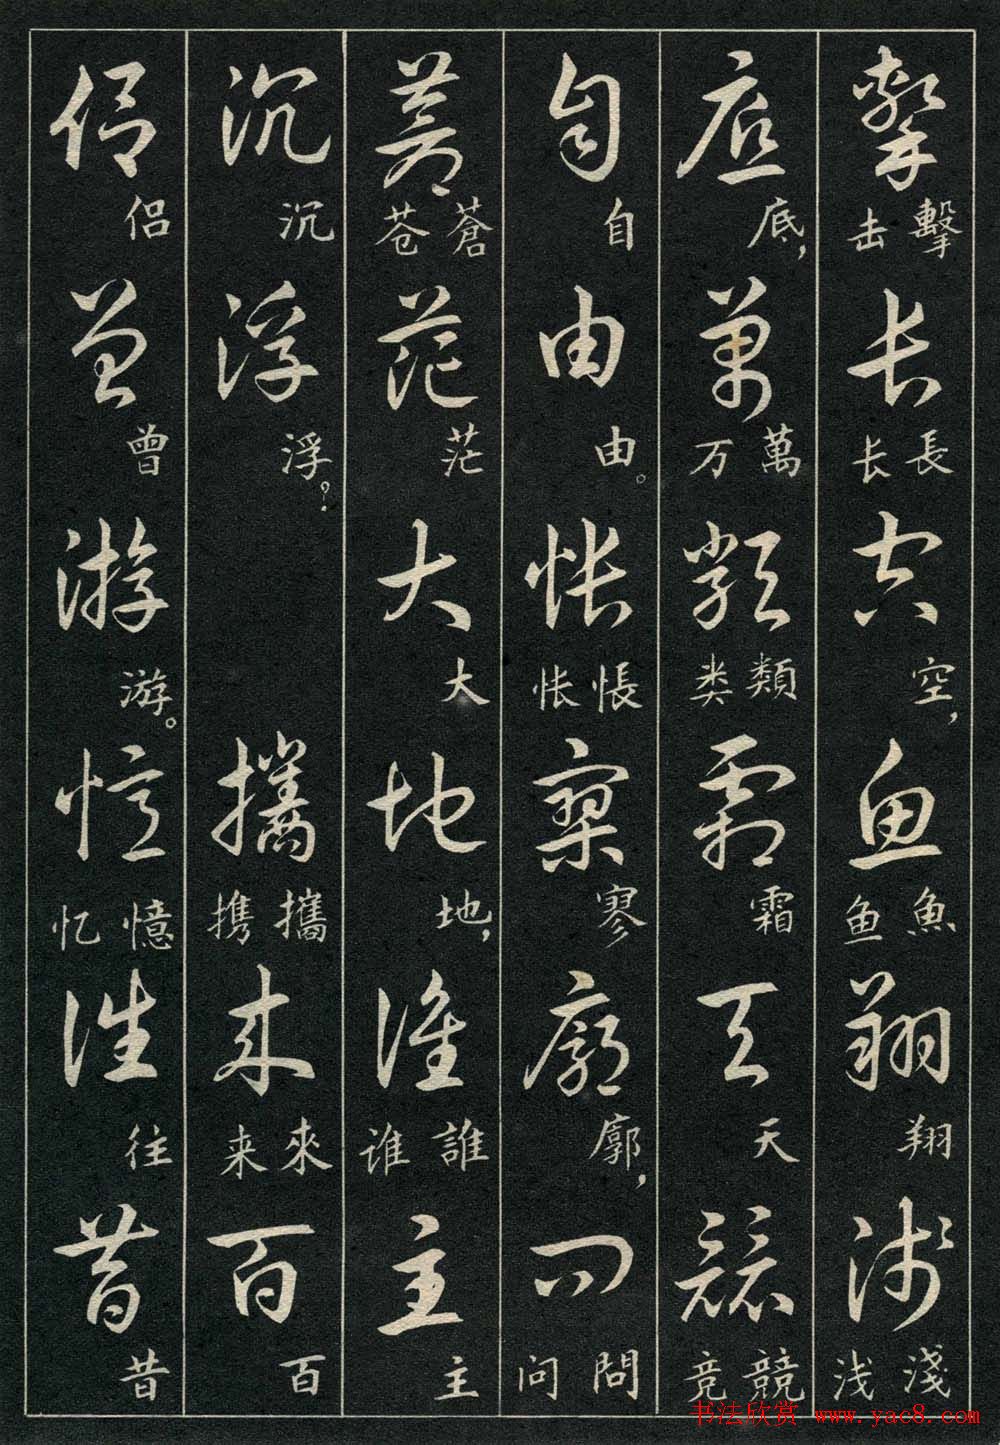 擊 擊击 長 長长 空 空， 魚 魚鱼 翔 翔 淺 淺浅
底 底， 萬 萬万 類 類类 霜 霜 天 天 競 競竞
自 自 由 由。 悵 悵怅 寥 寥 廓 廓， 問 問问
蒼 蒼苍 茫 茫 大 大 地 地， 誰 誰谁 主 主
沉 沉 浮 浮？ 攜 攜携 來 來来 百 百
侣 侣 曾 曾 游 游。 憶 憶忆 往 往 昔 昔
书法欣赏 www.yac8.com